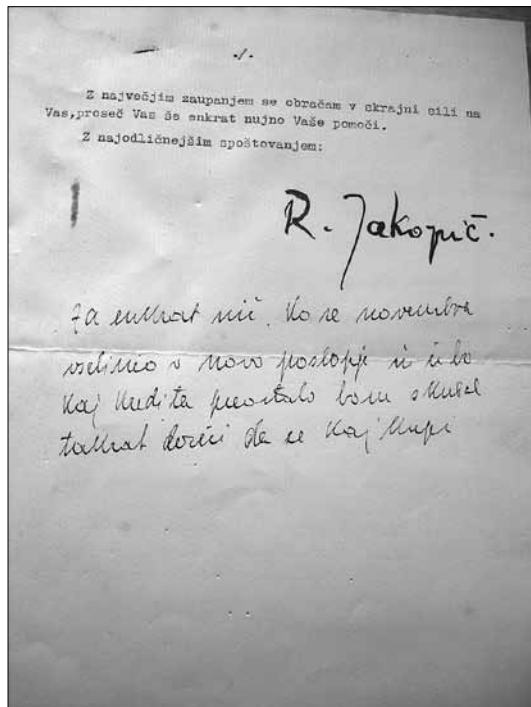 ./.
Z največjim zaupanjem se obračam v skrajni sili na
Vas,proseč Vas še enkrat nujno Vaše pomoči.
Z najodličnejšim spoštovanjem:
R. Jakopič.
Za enkrat nič. Ko se novembra
vselimo v novo poslopje in če bo
kaj kredita preostalo bom skušal
takrat doseči da se kaj kupi